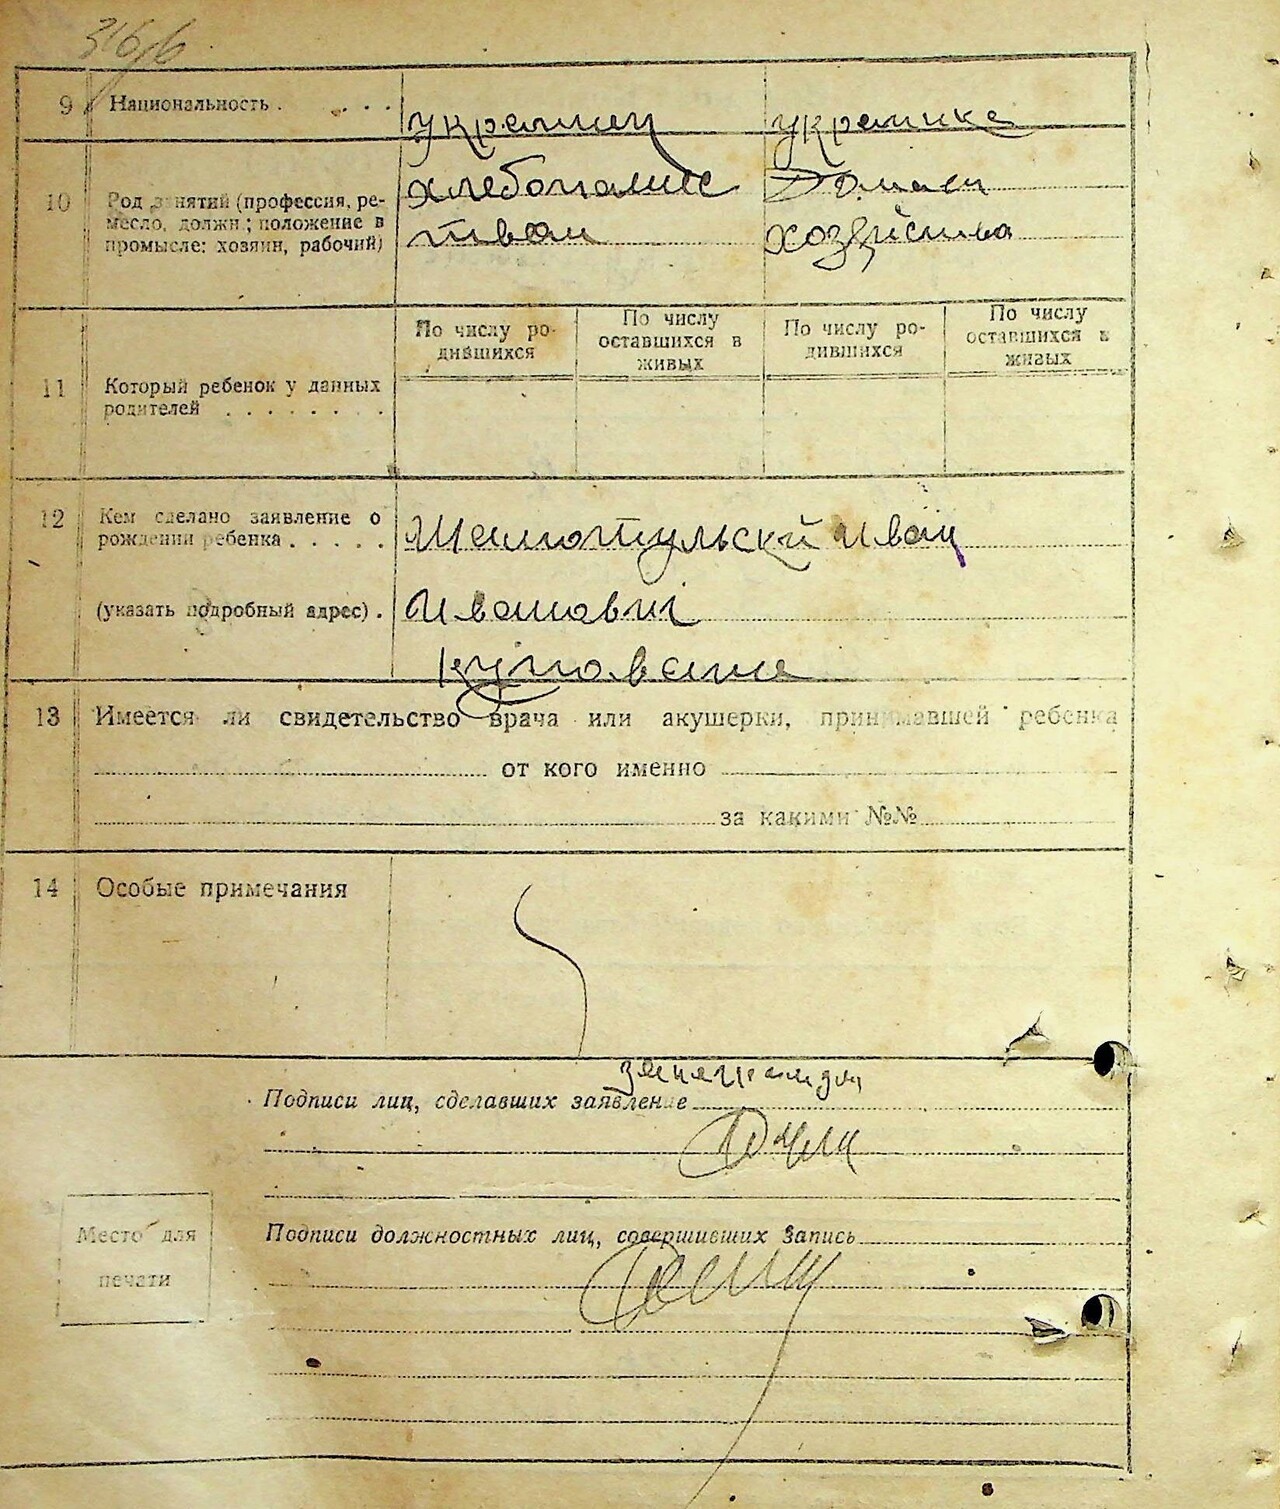 316/6
9 Национальность . . . . украинец украинка
10 Род занятий (профессия, ре- хлебопашес Домаш
месло, должн.; положение в
промысле: хозяин, рабочий) твом хозяйства
По числу ро-
дившихся
По числу
оставшихся в
живых
По числу ро-
дившихся
По числу
оставшихся в
живых
11 Который ребенок у данных
родителей . . . . . . . .
12 Кем сделано заявление о
рождении ребенка . . . . . Иван
(указать подробный адрес) . Иванович
13 Имеется ли свидетельство врача или акушерки, принимавшей ребенка
от кого именно
за какими №№
14 Особые примечания
Подписи лиц, сделавших заявление
Подписи должностных лиц, совершивших запись
Место для
печати